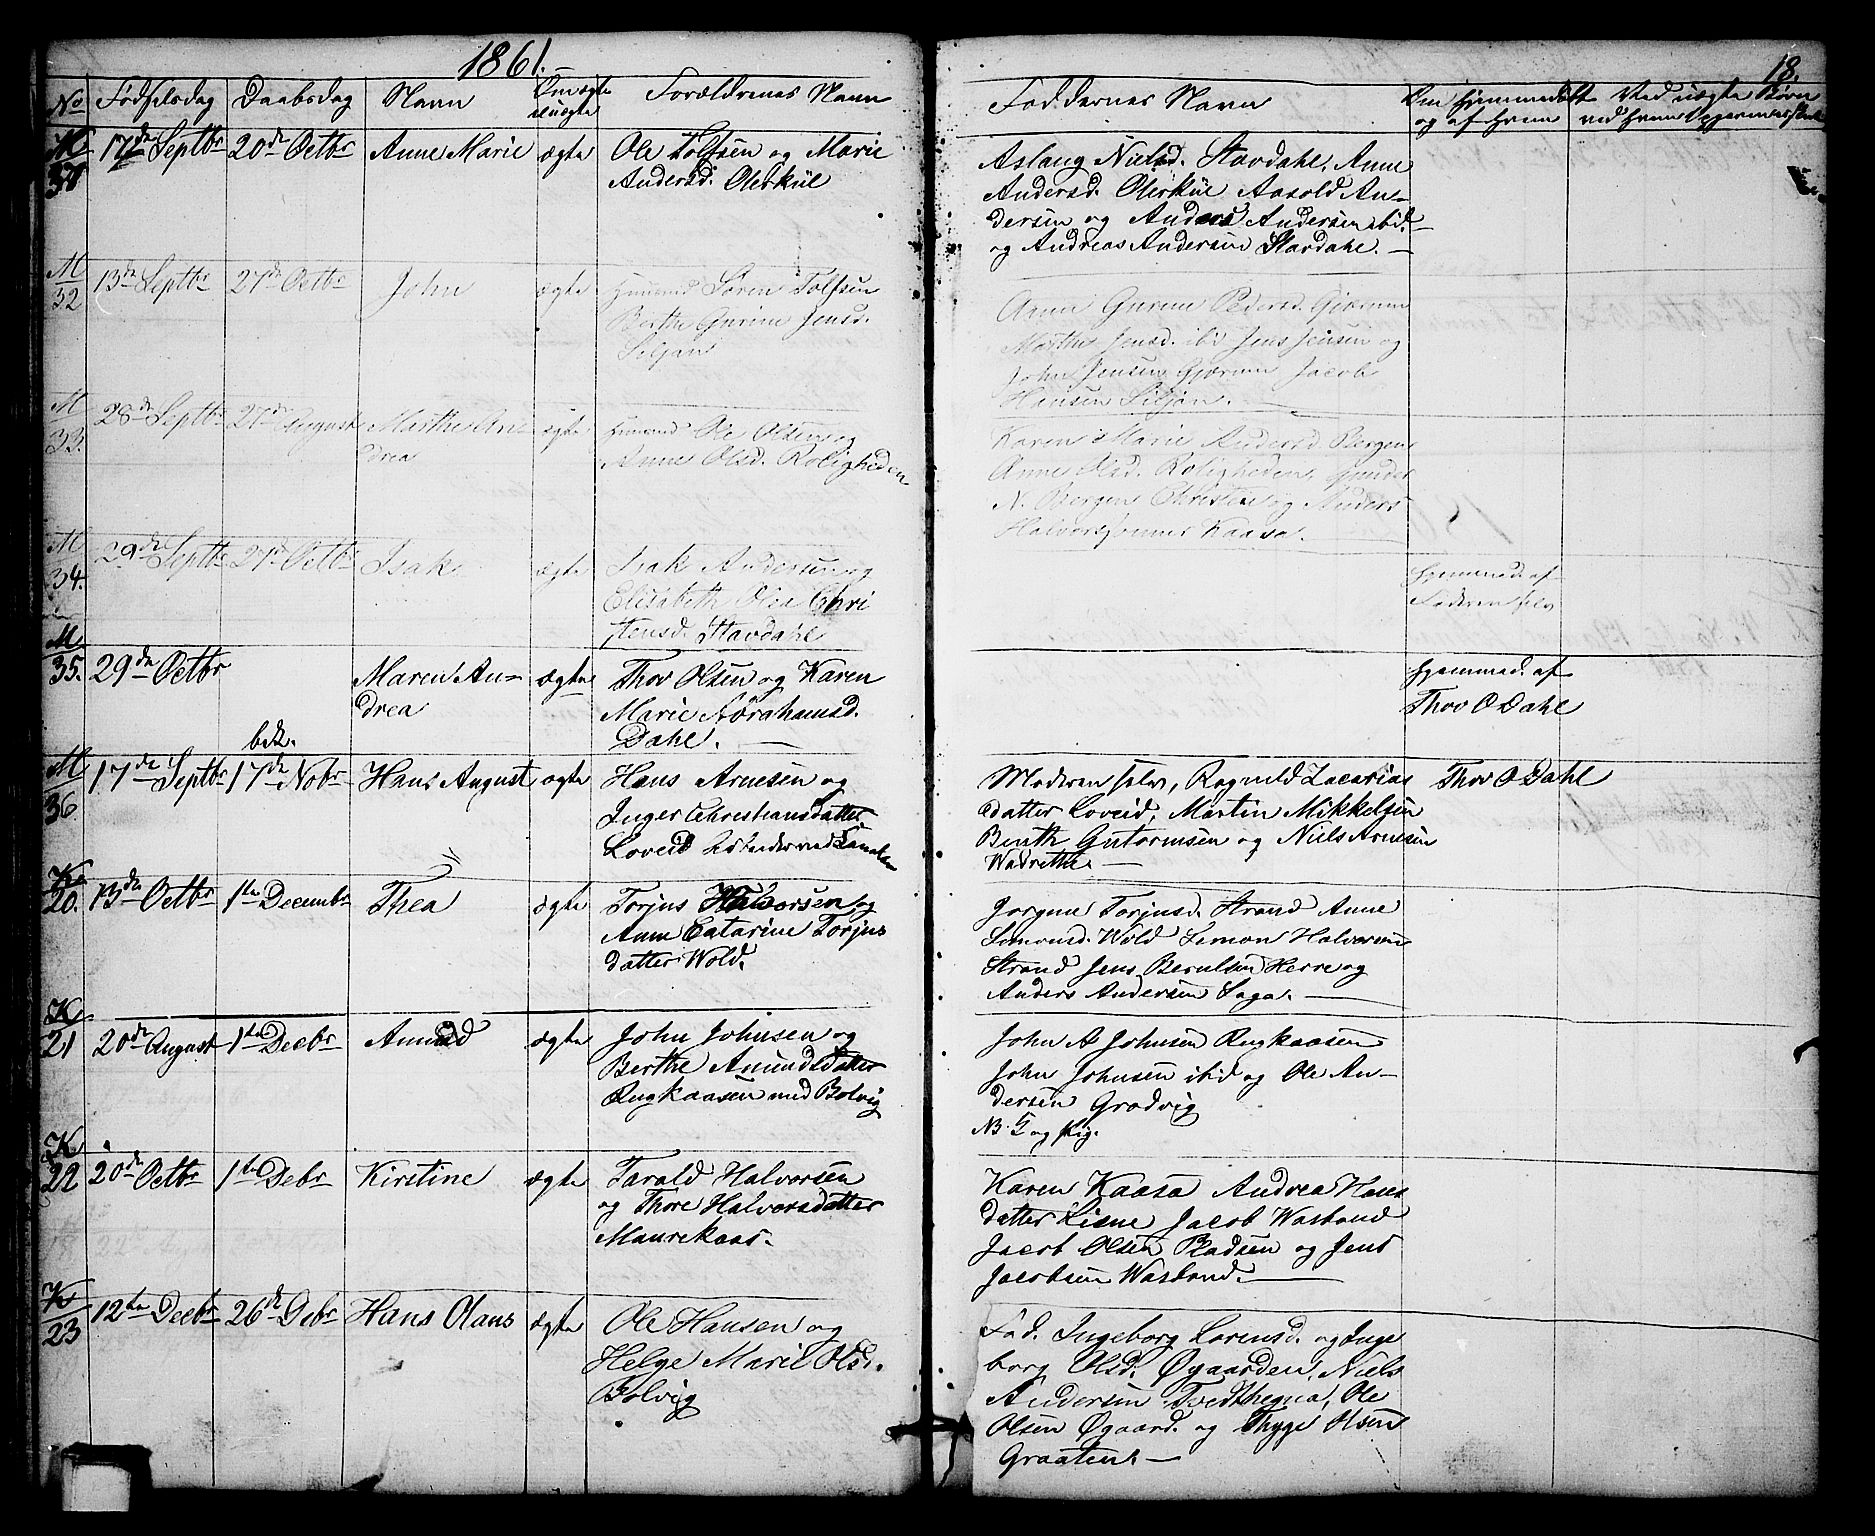 1861.
18.
No Födselsdag Daabsdag Navn Om ægte Forældrenes Navn
uægte
Faddernes Navn Om hjemmedøbt Ved uægte Børn
og af hvem
M 17de Septbr 20de Octbr Anne Marie ægte Ole Tolfsen og Marie
Andersd. Olerküe
Aslaug Nielsd. Stavdahl, Anne
Andersd. Olerküe Aasold An-
dersen og Anders Andersen ibid.
og Andreas Andersen Stavdahl. —
M
32 13de Septbr 27de Octbr John ægte Huusmd Sören Tolfsen
Berthe Gurine Jensd.
Siljan
Anne Gurine Pedersd. Gjerum
Marthe Jensd. ibid Jens Jensen og
John Jensen Gjerum Jacob
Hansen Siljan.
M
33. 28de Septbr 27de August Marthe An ægte Huusmd Ole Olsen og
drea Anne Olsd. Roligheden
Karen Marie Andersd Bergen
Anne Olsd. Roligheden, Gunder
N. Bergen Christen og Anders
Halvorssønner Kaasa.
M
34. 29de Septbr 27de Octbr Isak ægte Isak Andersen og
Elisabeth Olea Chri
stensd. Stavdahl
hjemmed. af
Faderen selv
M
35. 29de Octbr Maren An- ægte Thov Olsen og Karen
drea Marie Abrahamsd.
Dahl. —
hjemmed. af
Thov O Dahl
bek.
M
36 17de Septbr 17de Nobr Hans August ægte Hans Arnesen og
Inger Christiansdatter
Loveid Arbeider ved Canalen
Moderen selv, Ragnild Zacarias Thov O Dahl
datter Loveid, Martin Mikkelsen
Benth Gutormsen og Niels Arnesen
K
20. 13de Octbr 1ste Decembr Thea ægte Torjus Halvorsen og
Anne Catarine Torjus
datter Wold.
Jorgine Torjusd. Strand Anne
Simonsd. Wold Simon Halvorsen
Strand Jens Berulsen Herre og
Anders Andersen Saga. —
K
21 20de August 1ste Decbr Amund ægte John Johnsen og
Berthe Amundsdatter
Rugkaasen med Bolvig
John A Johnsen Rugkaasen
John Johnsen ibid og Ole An-
dersen Grodvig
K
22 20de Octbr 1ste Debr Kirstine ægte Tarald Halvorsen
og Thore Halvorsdatter
Maurekaas.
Karen Kaasa Andrea Hans
datter Liane Jacob Wasbond
Jacob Olsen Rødsen og Jens
Jacobsen Wasbond. —
K
23 12te Decbr 26de Debr Hans Olaus ægte Ole Hansen og
Helge Marie Olsd.
Bolvig
Fad. Ingeborg Lorensd. og Inge
borg Olsd. Øgaarden, Niels
Andersen Tvedthegna, Ole
Olsen Øgaard. og Thyge
Graaten. —